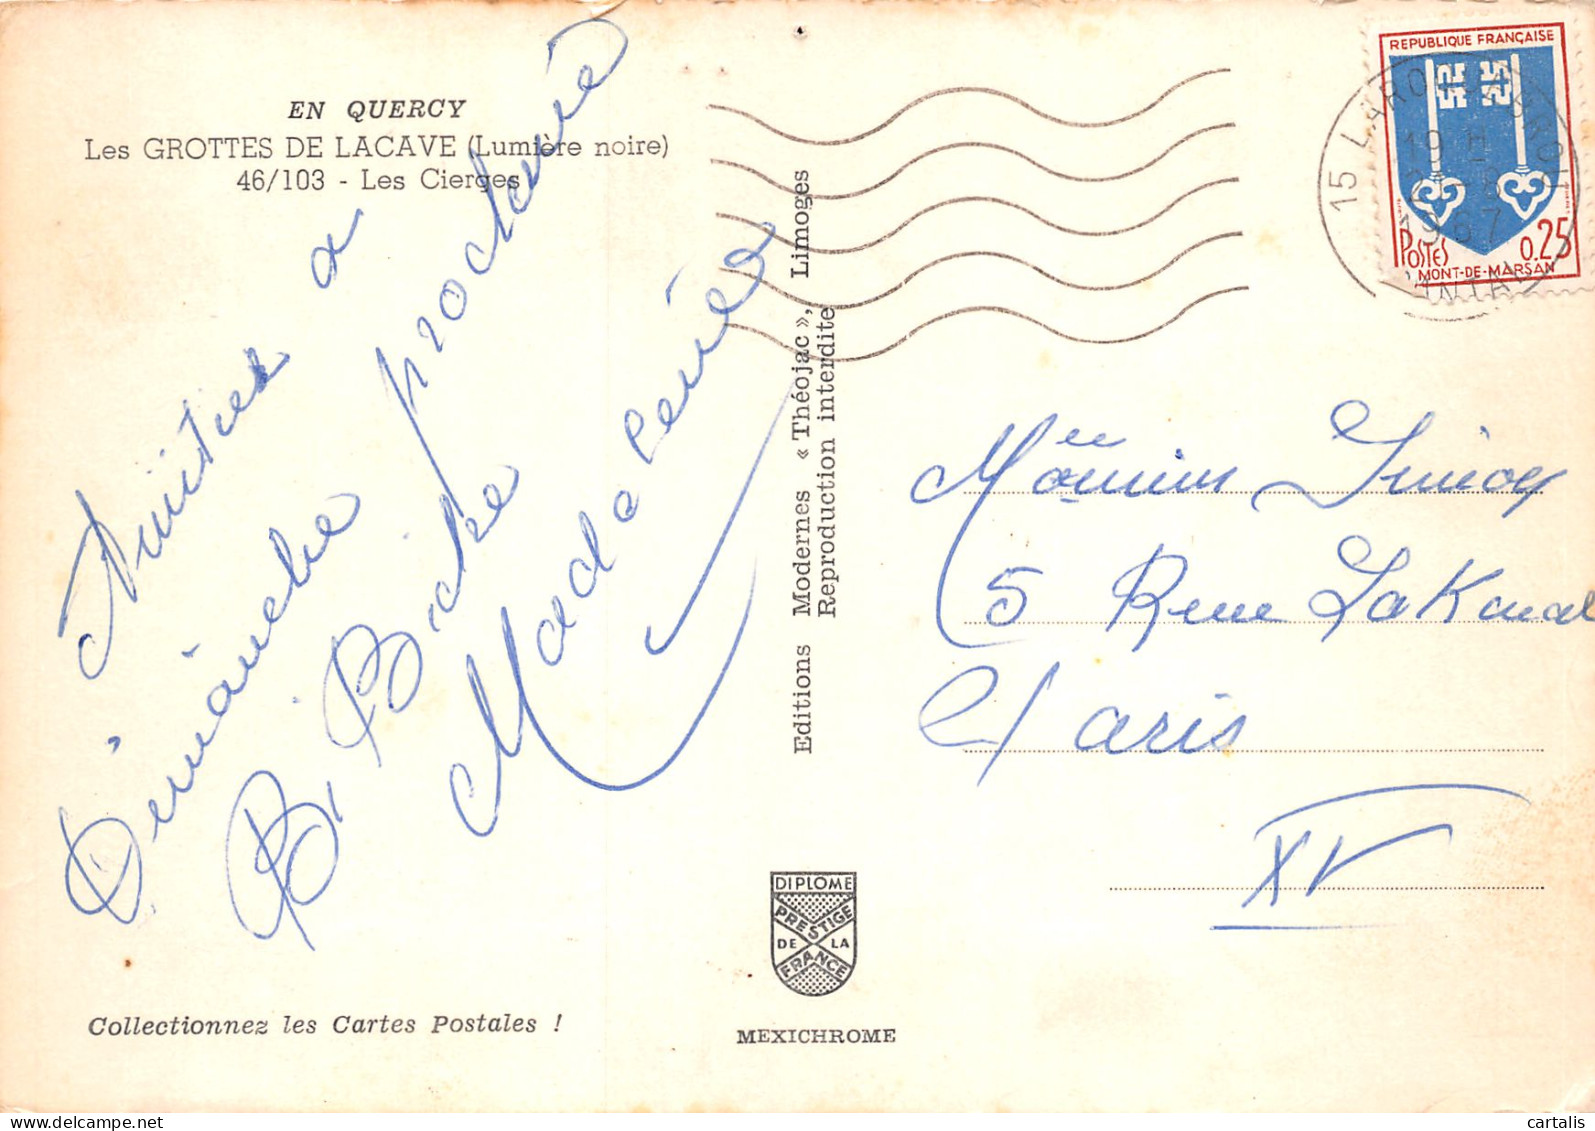 EN QUERCY
Les GROTTES DE LACAVE (Lumière noire)
46/103 - Les Cierges
Amitiés à
Dimanche prochain
Bi Biche
Madeleine
Collectionnez les Cartes Postales !
Editions Modernes « Théojac », Limoges
Reproduction interdite
DIPLOME
PRESTIGE
DE LA
FRANCE
MEXICHROME
REPUBLIQUE FRANÇAISE
25 25
POSTES 0.25
MONT-DE-MARSAN
15 LAROQUEBROU
19 H
1967
CANTAL
5 Rue LaKanal
Paris
XV
cartalis